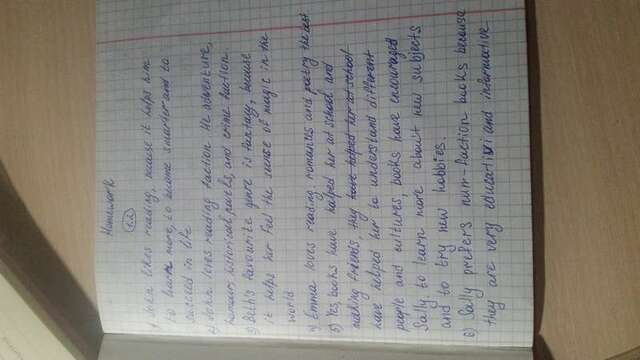 Homework
1.2
1) John likes reading, because it helps him
to learn more, to become smarter and to
succeed in life
2) John loves reading fiction like adventure,
humour, historical novels, and crime fiction.
3) Beth's favourite genre is fantasy, because
it helps her feel the sense of magic in the
world
4) Emma loves reading romantes and poetry the best
5) Yes, books have helped her at school and
making friends, they have helped her at school
have helped her to understand different
people and cultures, books have encouraged
Sally to learn more about new subjects
and to try new hobbies.
6) Sally prefers nun-faction books because
they are very educativ and informative